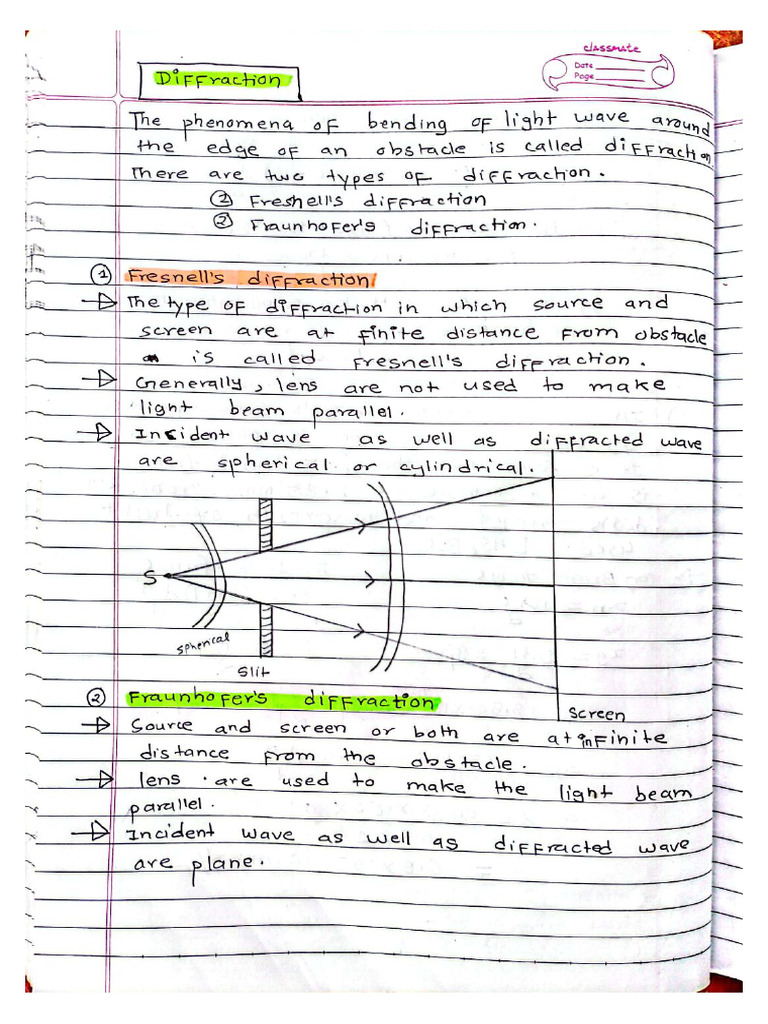 classmate
Date
Page
Diffraction
The phenomena of bending of light wave around
the edge of an obstacle is called diffraction
There are two types of diffraction.
① Freshell's diffraction
② Fraunhofer's diffraction.
① Fresnell's diffraction
→ The type of diffraction in which source and
screen are at finite distance from obstacle
is called Fresnell's diffraction.
→ Generally, lens are not used to make
light beam parallel.
→ Incident wave as well as diffracted wave
are spherical or cylindrical.
S
spherical
slit
screen
② Fraunhofer's diffraction
→ Source and screen or both are at infinite
distance from the obstacle.
→ lens are used to make the light beam
parallel.
→ Incident wave as well as diffracted wave
are plane.